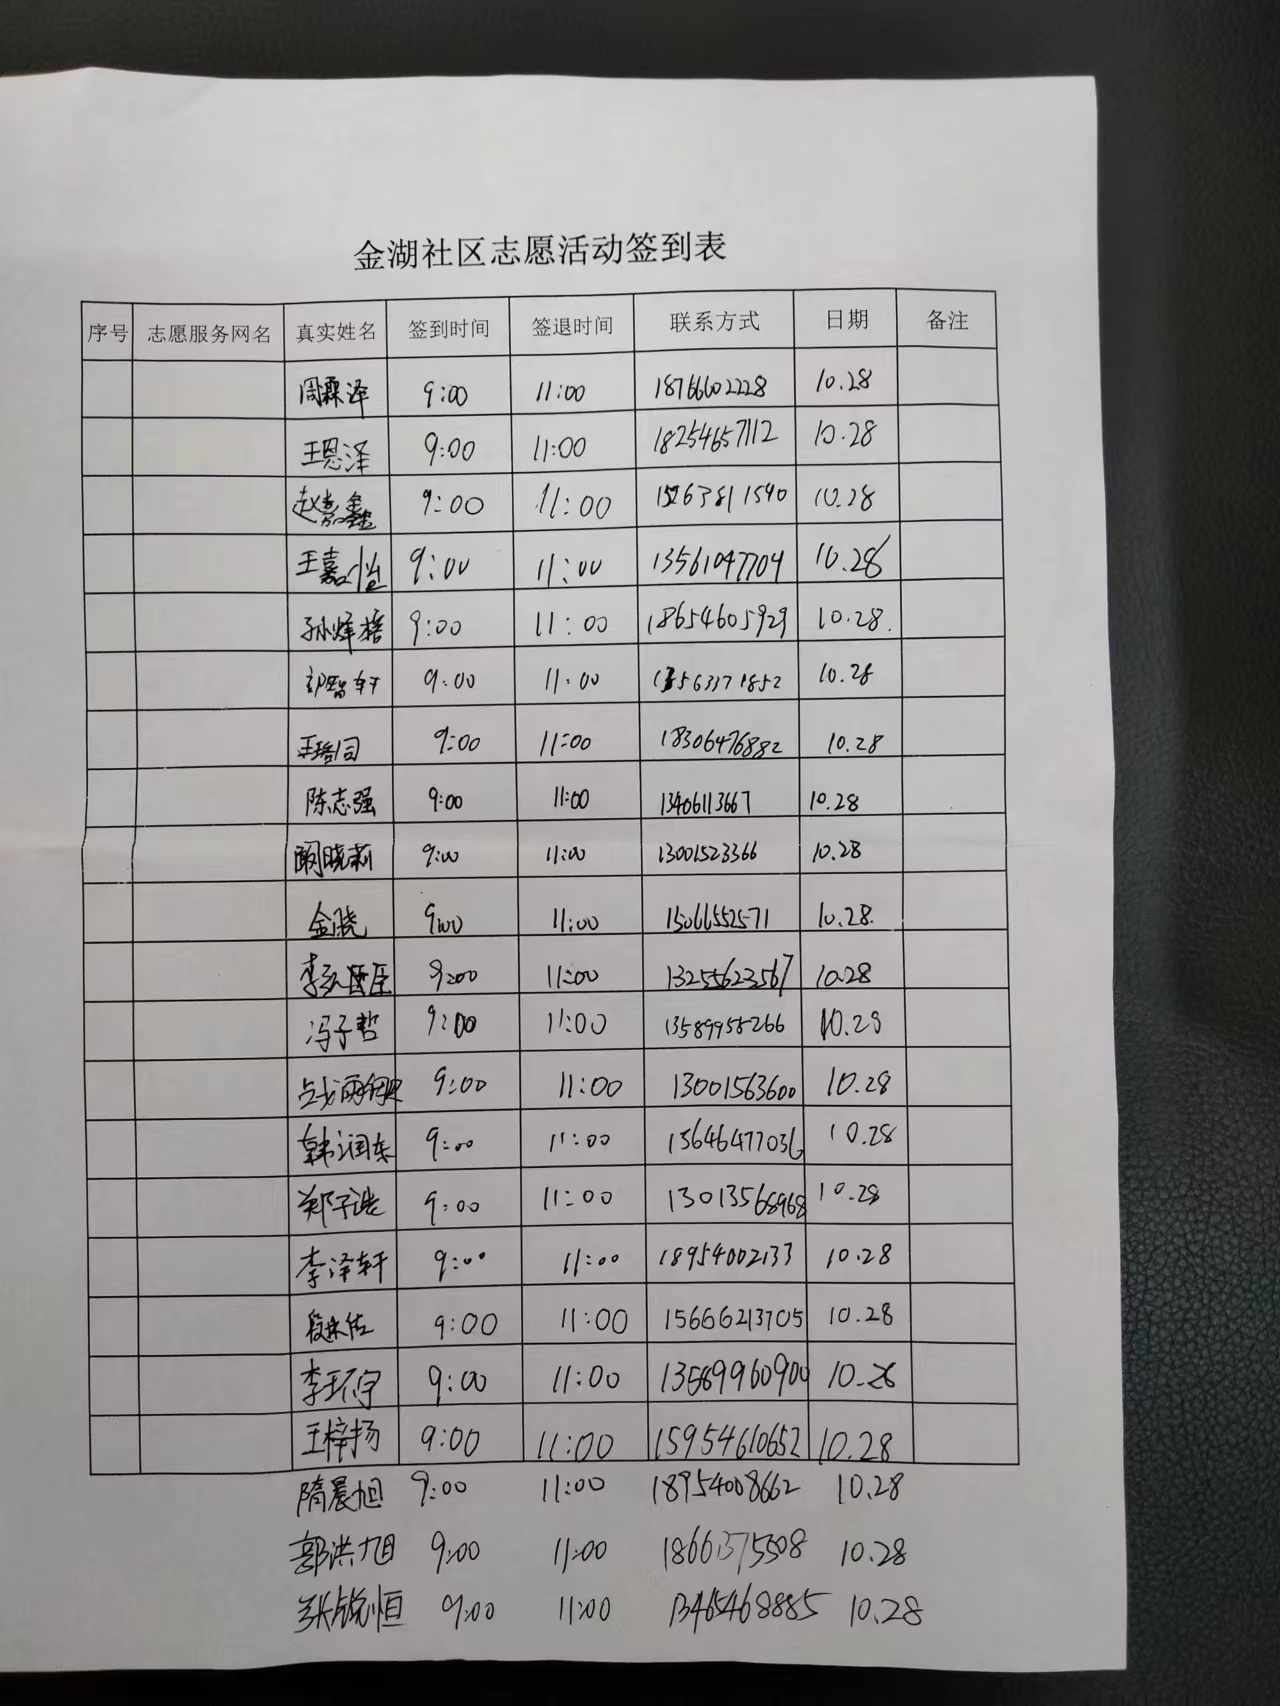 金湖社区志愿活动签到表
序号 志愿服务网名 真实姓名 签到时间 签退时间 联系方式 日期 备注
周霖泽 9:00 11:00 18766602228 10.28
王恩泽 9:00 11:00 18254657112 10.28
赵嘉鑫 9:00 11:00 15263811590 10.28
王嘉怡 9:00 11:00 13561047704 10.28
孙烨梧 9:00 11:00 18654605929 10.28.
智轩 9:00 11:00 13563371852 10.28
王 9:00 11:00 18306476882 10.28
陈志强 9:00 11:00 13406113667 10.28
阚晓莉 9:00 11:00 13001523366 10.28
金晓 9:00 11:00 15066552571 10.28.
李 9:00 11:00 13255623567 10.28
冯子哲 9:00 11:00 13589958266 10.28
战雨 9:00 11:00 13001563600 10.28
韩润东 9:00 11:00 15646477036 10.28
郑子浩 9:00 11:00 13013568968 10.28
李泽轩 9:00 11:00 18954002133 10.28
段沐佑 9:00 11:00 15666213705 10.28
李环宇 9:00 11:00 13589960900 10.28
王梓扬 9:00 11:00 15954610652 10.28
隋晨旭 9:00 11:00 18954008662 10.28
郭洪旭 9:00 11:00 18661375508 10.28
张锐恒 9:00 11:00 13465468885 10.28